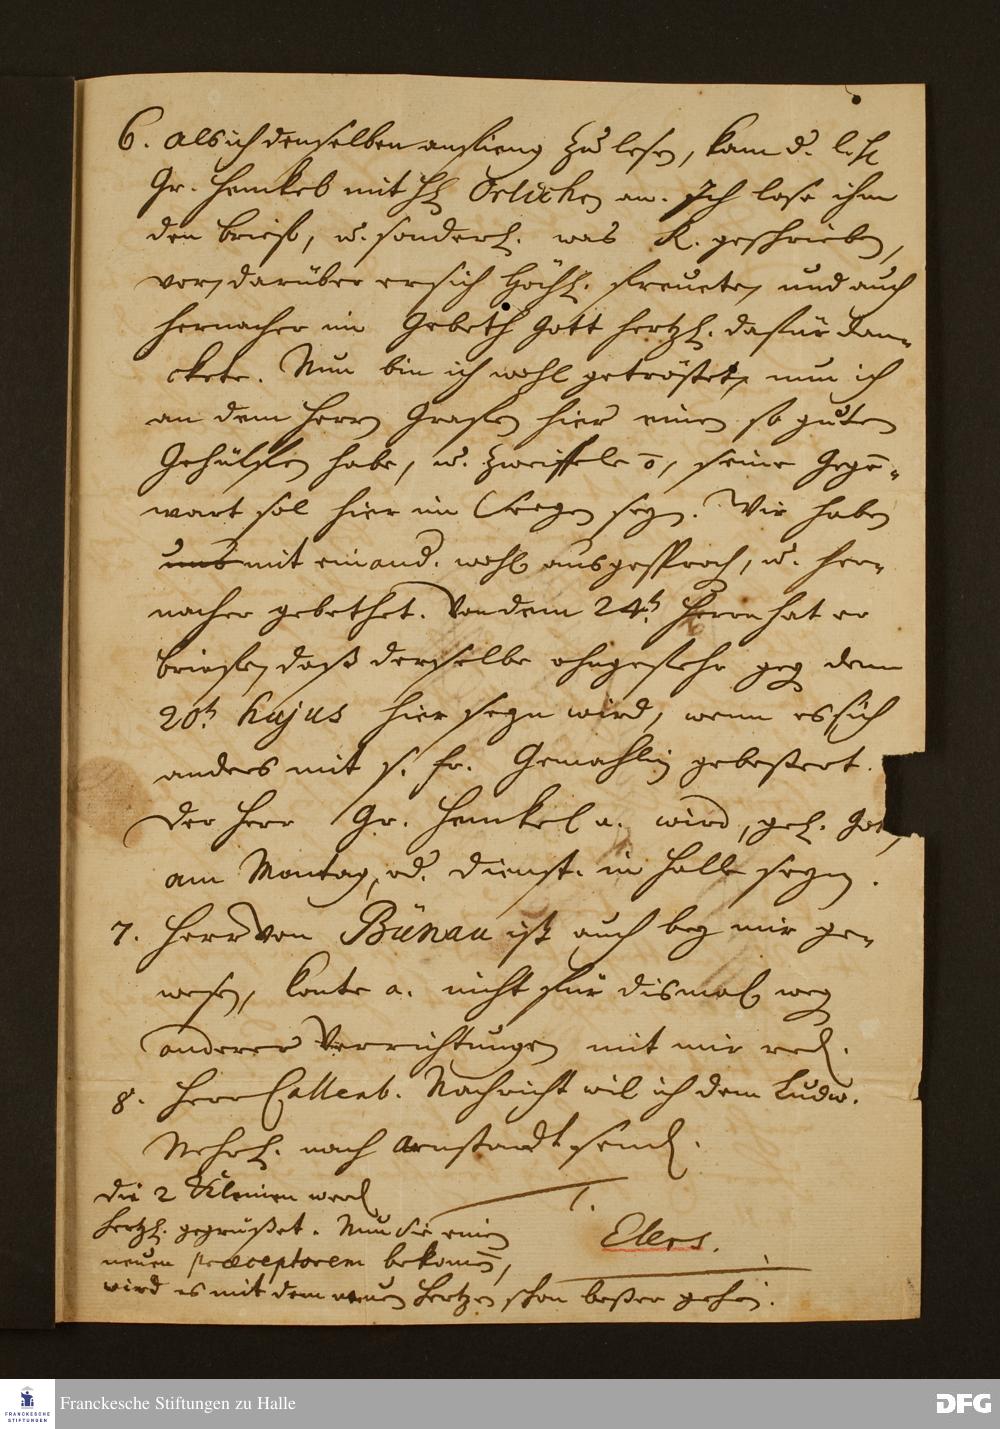 6. Als ich denselben anfieng zu lesen, kam d. l. H
Gr. Henckel mit H. Oelichen an. Ich lase ihm
den brieff, u. sonderl. was K. geschrieben,
vor, darüber er sich höchl. freuete, und auch
hernacher im Gebeth Gott hertzl. dafür dan-
ckete. Nun bin ich wohl getröstet, nun ich
an dem Herrn Grafen hier einen so guten
Gehülffen habe, u. zweiffele õ, seine Gegē-
wart sol hier im Seegen seyn. Wir haben
uns mit einand. wohl ausgesproch, u. her-
nacher gebethet. Von dem 24t. Herrn hat er
briefe, daß derselbe ohngefehr geg den
20t. hujus hier seyn wird, wenn es sich
anders mit s. Fr. Gemahlin gebeßert.
Der Herr Gr. Henkel a. wird, gel. Got
am Montag, od. Dienst. in Halle seyn.
7. Herr von Bünau ist auch bey mir ge-
wesen, konte a. nicht für dismal weg
anderer Verrichtungen mit mir red.
8. Herr Callenb. Nachricht wil ich dem Ludw.
nach Arnstardt send.
Die 2 Kleinen werd
hertzl. gegrüßet. Nun sie einen
neuen præceptorem bekomē,
wird es mit dem neuen Hertzen schon beßer gehen.
Elers.
Franckesche Stiftungen zu Halle
FRANCKESCHE
STIFTUNGEN
DFG